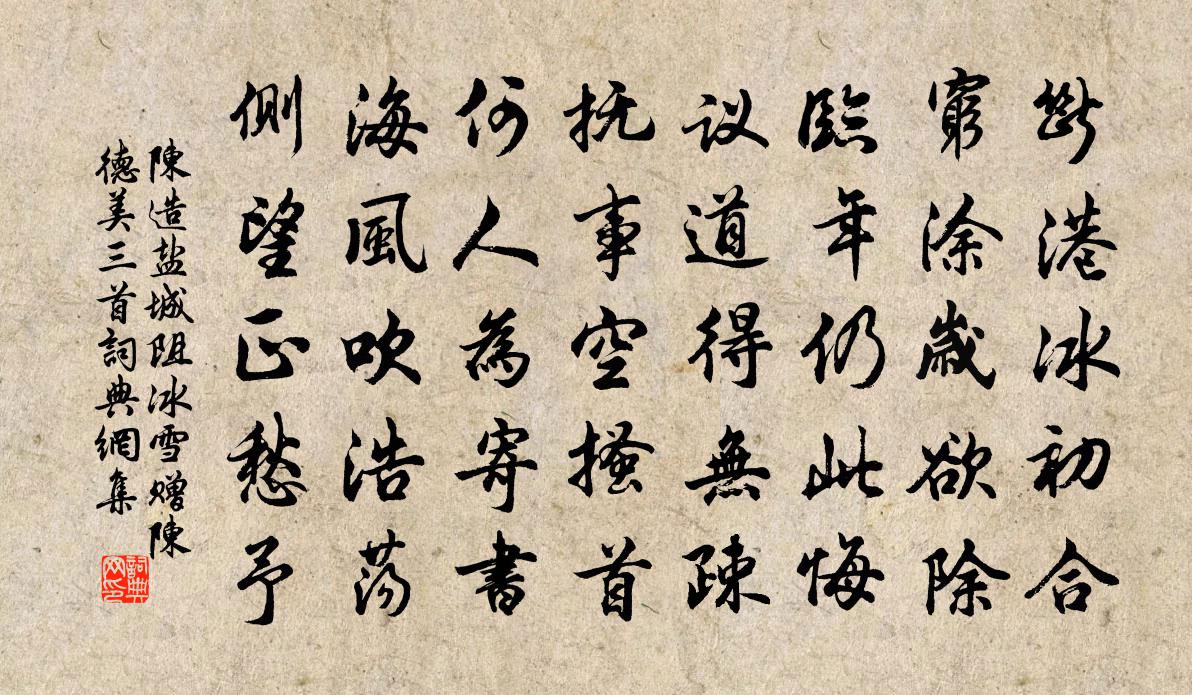 斷港冰初合
窮涂歲欲除
臨年仍此悔
议道得無疎
抚事空搔首
何人為寄書
海風吹浩荡
側望正愁予
陳造盐城阻冰雪赠陳
德美三首詞典網集
詞典网印